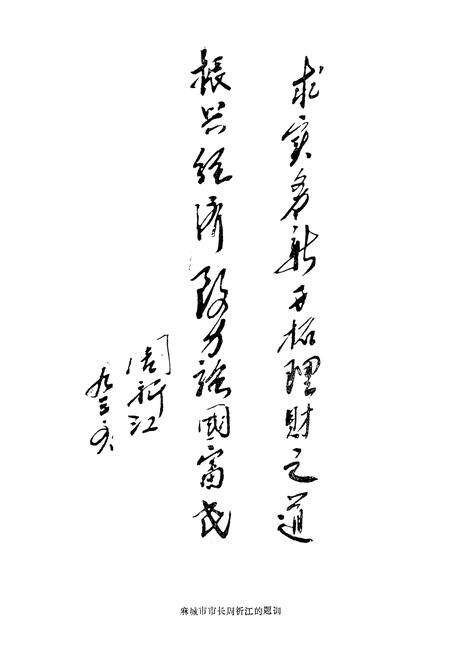 求实务新开拓理財之道
振兴经济致力強國富民
周忻江
九三、六
麻城市市长周忻江的题训